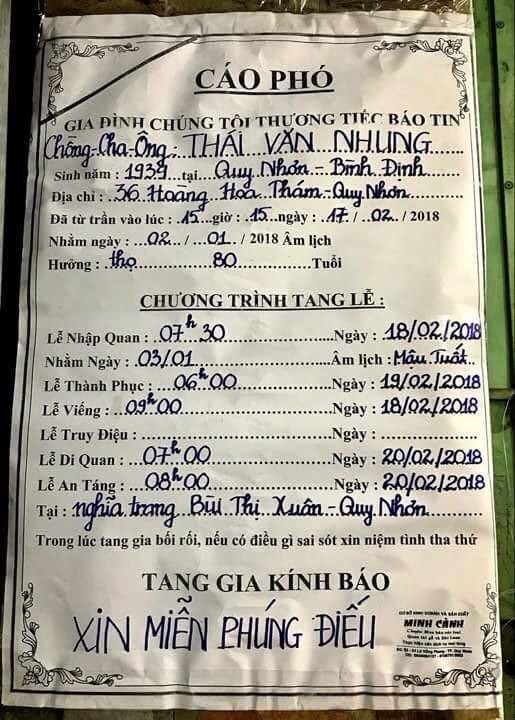 CÁO PHÓ
GIA ĐÌNH CHÚNG TÔI THƯƠNG TIẾC BÁO TIN
Chồng-Cha-Ông: THÁI VĂN NHUNG
Sinh năm : 1939 tại Quy Nhơn - Bình Định
Địa chỉ : 36 Hoàng Hoa Thám - Quy Nhơn
Đã từ trần vào lúc : 15 giờ : 15 ngày : 17 / 02 / 2018
Nhằm ngày : 02 / 01 / 2018 Âm lịch
Hưởng : thọ 80 Tuổi
CHƯƠNG TRÌNH TANG LỄ :
Lễ Nhập Quan : 07h 30 Ngày : 18/02/2018
Nhằm Ngày : 03/01 Âm lịch : Mậu Tuất
Lễ Thành Phục : 06h00 Ngày : 19/02/2018
Lễ Viếng : 09h00 Ngày : 18/02/2018
Lễ Truy Điệu : Ngày :
Lễ Di Quan : 07h00 Ngày : 20/02/2018
Lễ An Táng : 08h00 Ngày : 20/02/2018
Tại : nghĩa trang Bùi Thị Xuân - Quy Nhơn
Trong lúc tang gia bối rối, nếu có điều gì sai sót xin niệm tình tha thứ
TANG GIA KÍNH BÁO
XIN MIỄN PHÚNG ĐIẾU
CƠ SỞ KINH DOANH VÀ SẢN XUẤT
MINH CẢNH